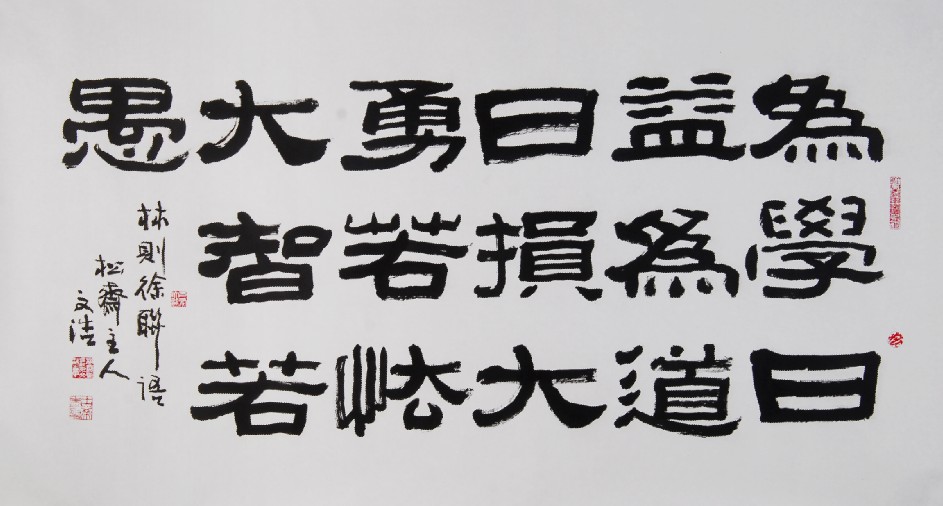 為學日
益爲道
日損大
勇若怯
大智若
愚
林則徐聯語
松齋主人
文浩